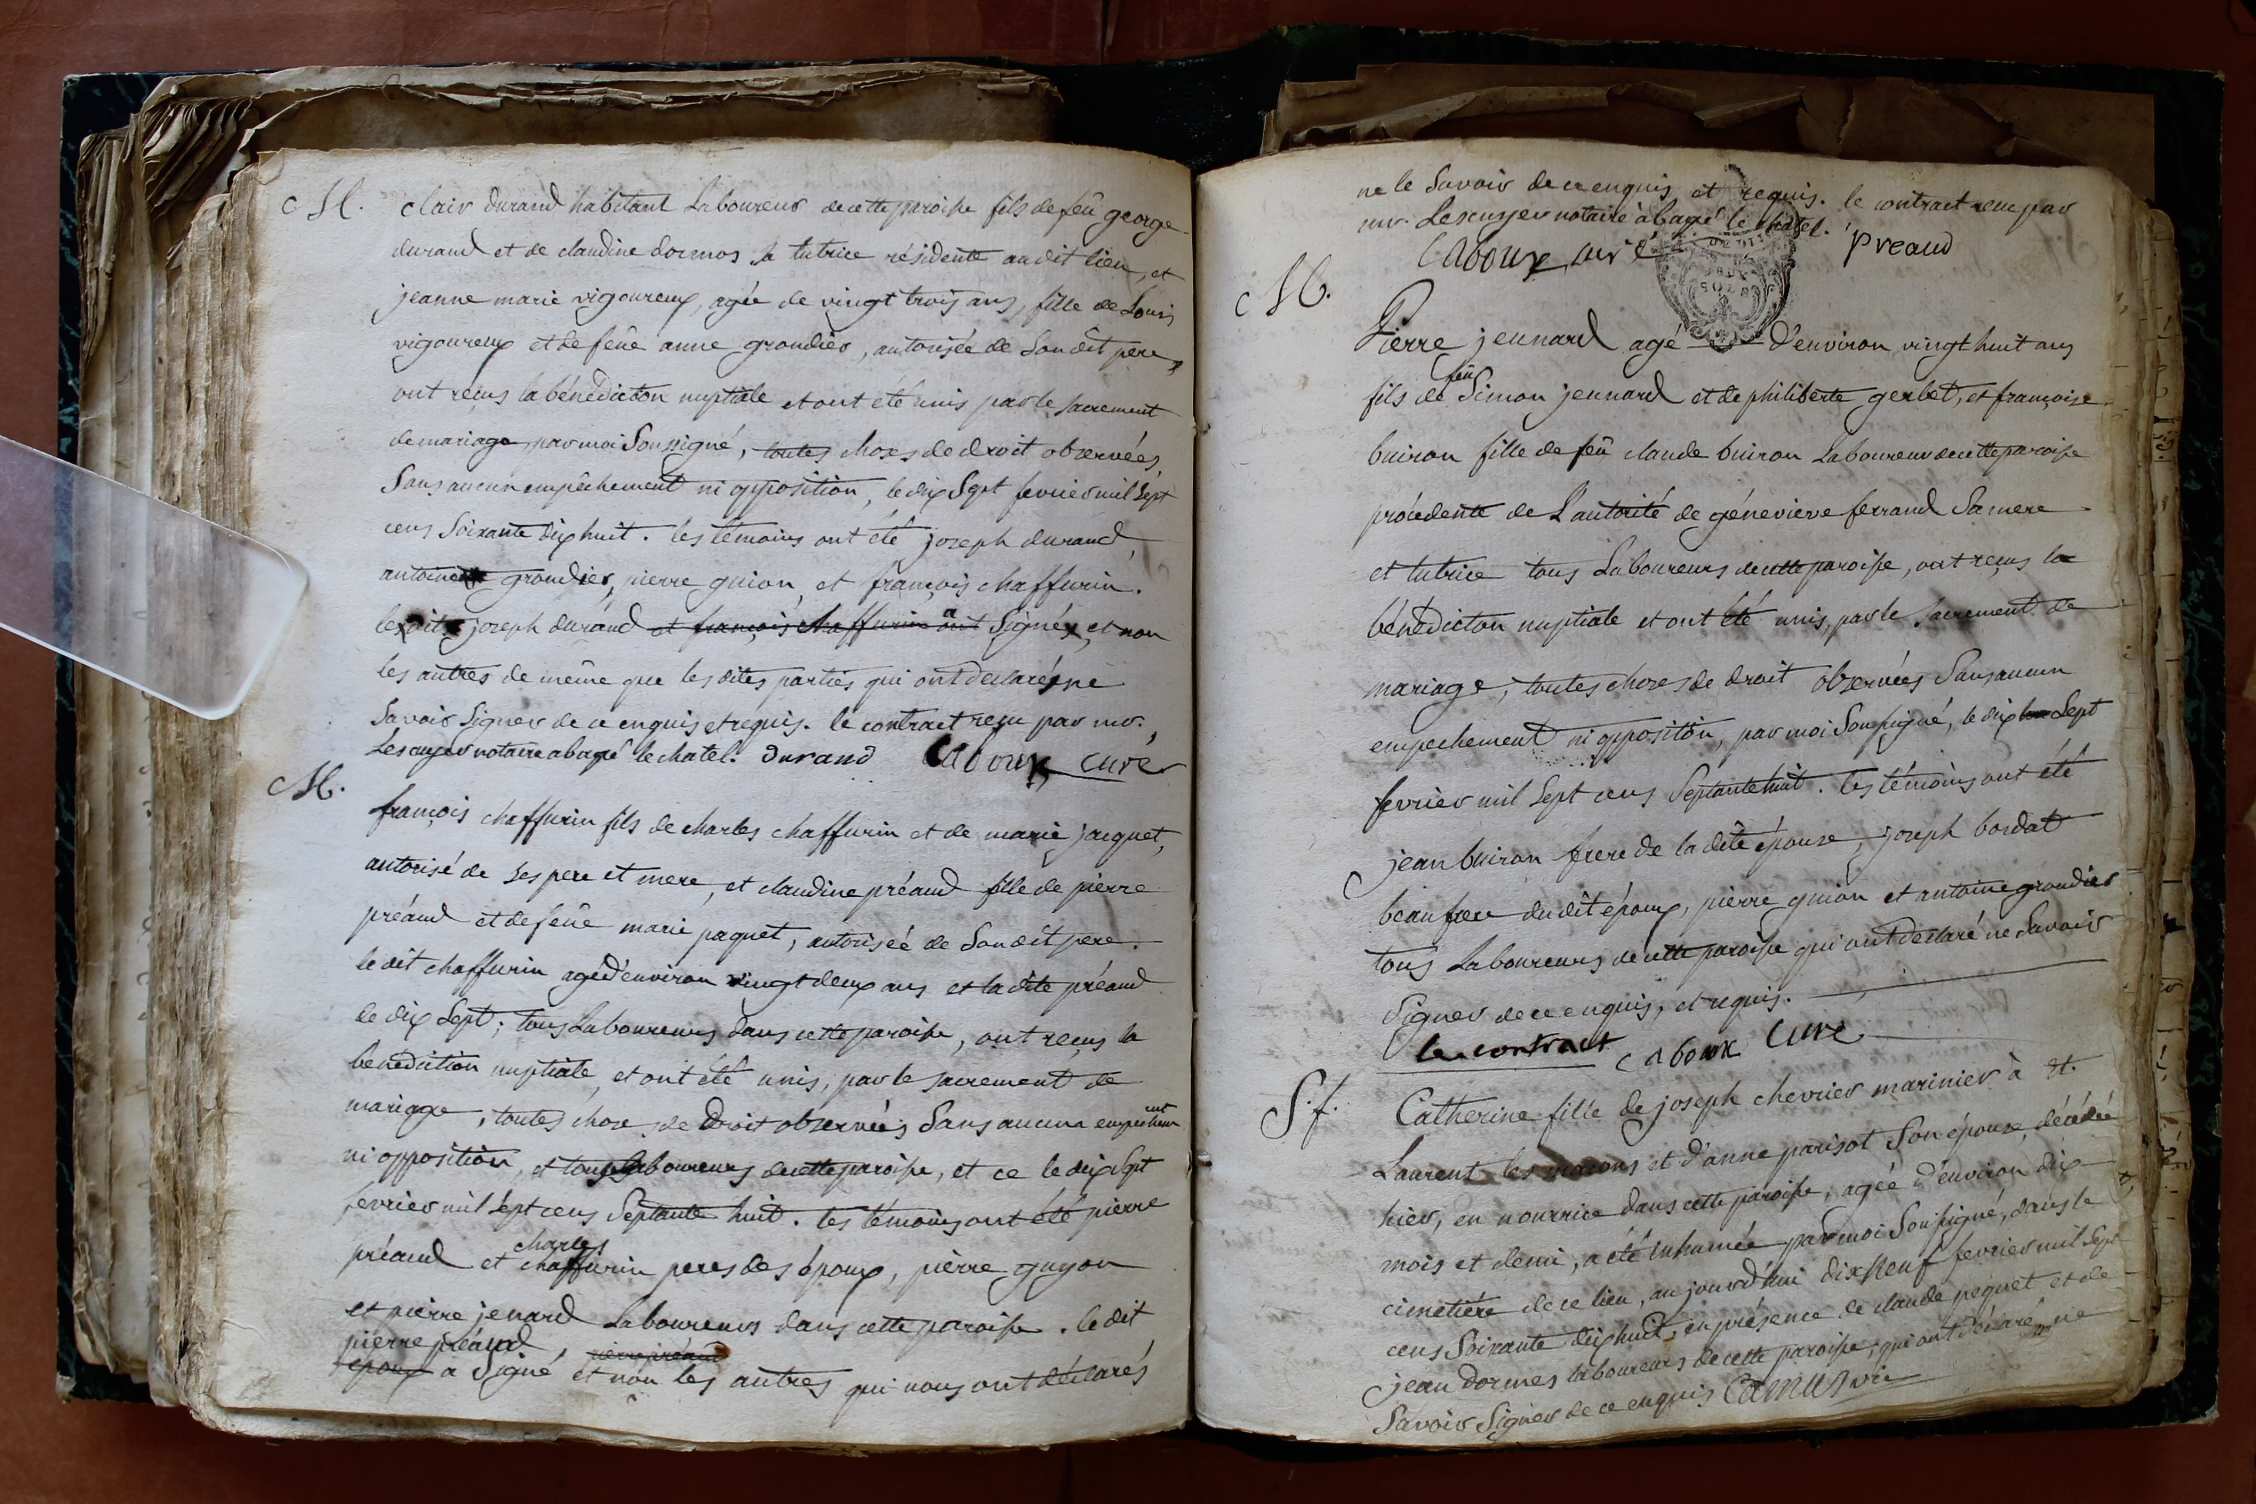 M. clair durand habitant Laboureur de cette paroisse fils de feû george
durand et de claudine dormos sa tutrice résidente audit lieu, et
jeanne marie vigoureux, agée de vingt trois ans, fille de Louis
vigoureux et de feûe anne grondier, autorisée de Son dit pere,
ont reçus la bénédiction nuptiale et ont été unis par le sacrement
de mariage, par moi Soussigné, toutes choses de droit observées,
Sans aucun empêchement ni opposition, le dix Sept fevrier mil Sept
cens Soixante dix huit. les témoins ont été joseph durand,
antoine grondier, pierre guion, et françois chaffurin.
le dit joseph durand et françois chaffurin a Signé, et non
les autres de même que les dites parties qui ont declaré ne
Savoir Signer de ce enquis et requis. le contract reçu par mr.
Lescuyer notaire a bagé le chatel. durand Caboux curé
M.
françois chaffurin fils de charles chaffurin et de marie jacquet,
autorisé de Ses pere et mere, et claudine préaud fille de pierre
préaud et de feûe marie paquet, autorisée de Son dit pere.
le dit chaffurin agé d'environ vingt deux ans et la dite préaud
de dix Sept; tous Laboureurs dans cette paroisse, ont reçus la
benediction nuptiale, et ont été unis, par le sacrement de
mariage, toutes choses de Droit observées Sans aucun empechement
ni opposition, et tous Laboureurs de cette paroisse, et ce le dix Sept
fevrier mil Sept cens Septante huit. les témoins ont été pierre
préaud et charles chaffurin peres des époux, pierre guyon
et pierre jenard Laboureurs dans cette paroisse. le dit
pierre préaud, pierre préaud
epoux a Signé et non les autres qui nous ont déclarés
ne le Savoir de ce enquis et requis. le contract reçu par
mr. Lescuyer notaire à bagé le chatel.
Caboux curé preaud
M.
Pierre jennard agé d'environ vingt huit ans
fils de feû Simon jennard et de philiberte gerbet, et françoise
buiron fille de feû claude buiron Laboureur de cette paroisse
procedente de L'autorité de géneviève ferrand Sa mere
et tutrice tous Laboureurs de cette paroisse, ont reçus la
bénédiction nuptiale et ont été unis, par le sacrement de
mariage, toutes choses de droit observées Sans aucun
empechement ni opposition, par moi Soussigné, le dix Sept
fevrier mil Sept cens Septante huit. les témoins ont été
jean buiron frere de la dite épouse, joseph bordat
beau frere du dit époux, pierre guion et antoine grondier
tous Laboureurs de cette paroisse qui ont declaré ne Savoir
Signer de ce enquis, et requis.
le contract Caboux Curé
S.f. Catherine fille de joseph chevrier marinier à St.
Laurent les macons et d'anne parisot Son épouse, décédée
hier, en nourrice dans cette paroisse, agée d'environ dix
mois et demi, a été inhumée par moi Soussigné, dans le
cimetière de ce lieu, aujourd'hui dix Neuf fevrier mil Sept
cens Soixante dix huit, en présence de claude pequet et de
jean dormes laboureurs de cette paroisse, qui ont déclaré ne
Savoir Signer de ce enquis Camus vic